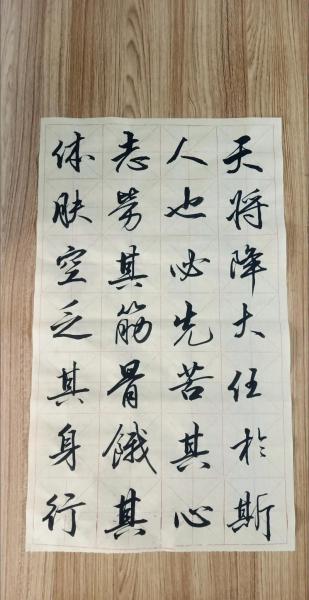 天将降大任於斯
人也必先苦其心
志劳其筋骨饿其
体肤空乏其身行